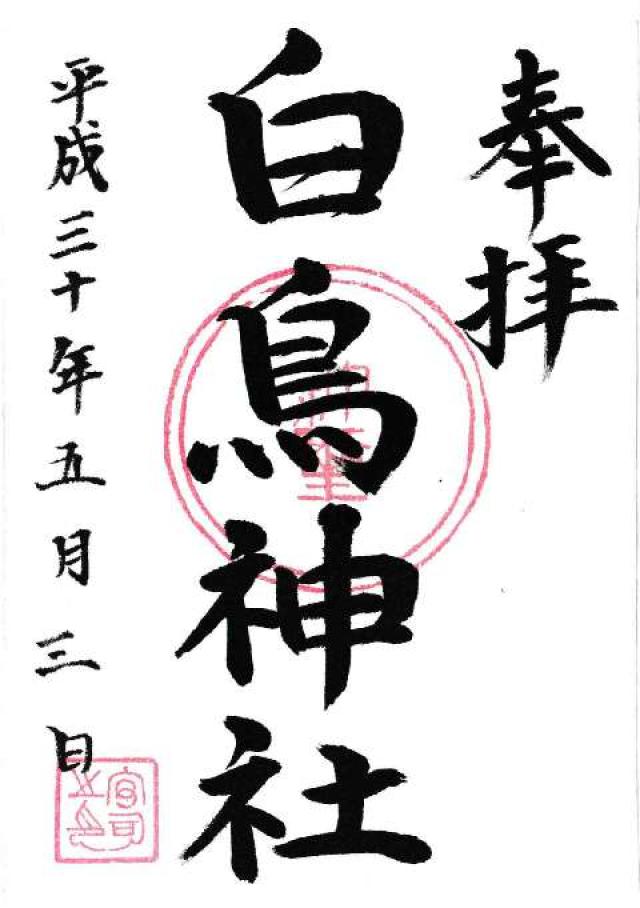 奉拝
白鳥神社
平成三十年五月三日